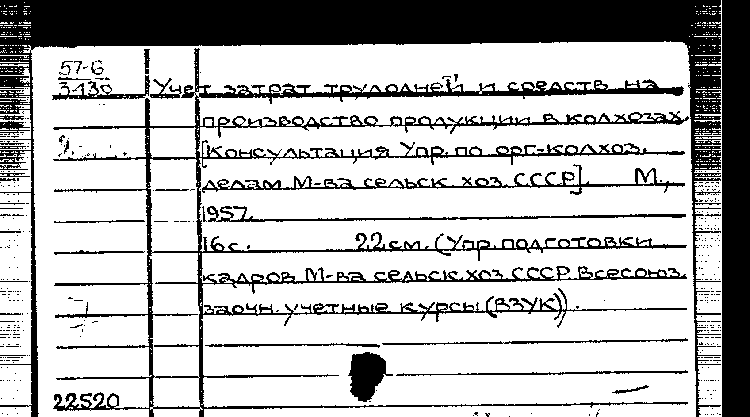 57-6
3130
Учет затрат трудодней и средств на
производство продукции в колхозах.
[Консультация Упр. по орг-колхоз.
делам М-ва сельск. хоз. СССР]. М.,
1957.
16 с. 22 см. (Упр. подготовки
кадров М-ва сельск. хоз. СССР. Всесоюз.
заочн. учетные курсы (ВЗУК)).
22520